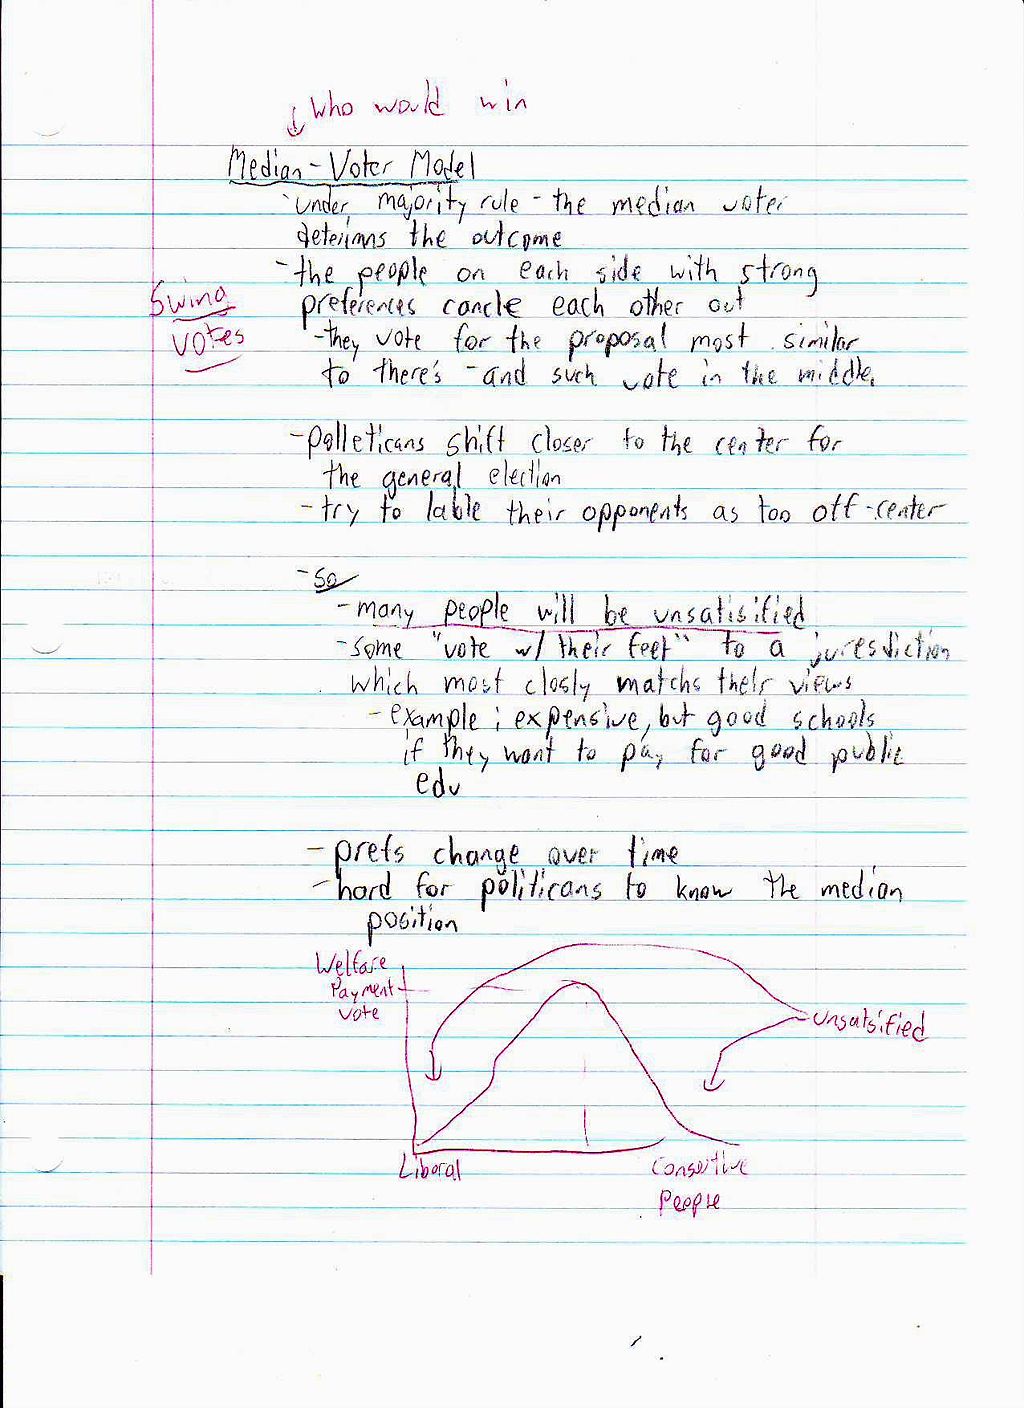 Who would win
Median-Voter Model
-under majority rule - the median voter
deterimns the outcome
-the people on each side with strong
Swing
preferences cancle each other out
votes
-they vote for the proposal most similar
to there's - and such vote in the middle.
-polleticans shift closer to the center for
the general election
-try to lable their opponents as too off-center
-So
-many people will be unsatisified
-some "vote w/ their feet" to a juresdiction
which most closly matchs their views
-example: expensive, but good schools
if they want to pay for good public
edu
-prefs change over time
-hard for politicans to know the median
position
Welfare
Payment
vote
unsatsified
Liberal
Consertive
People